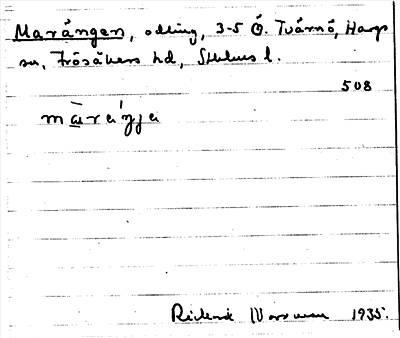 Marängen, odling, 3-5 Ö. Tvärnö, Hargs
sn, Frösåkers hd, Sthlms l.
508
Rickard 1935.